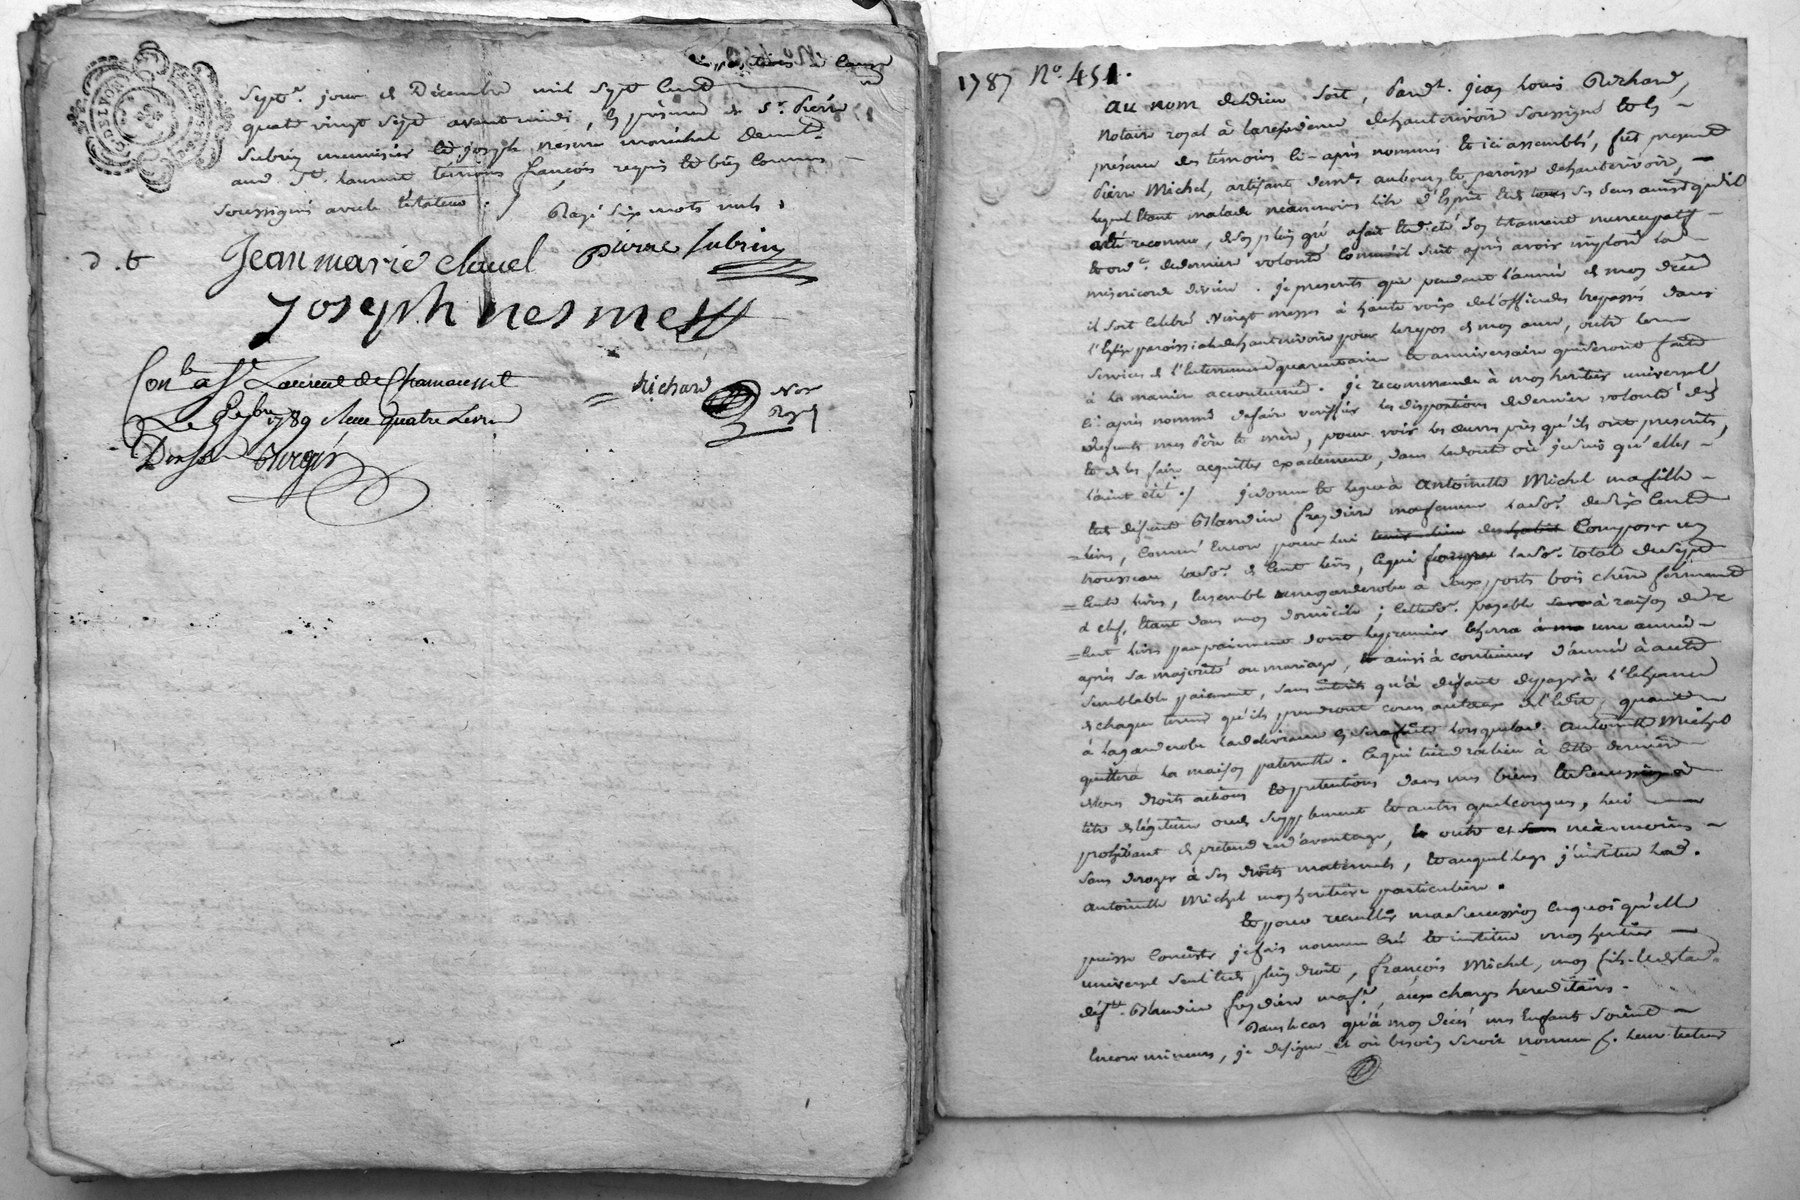 G. DE LYON
Sept.e jour de Décembre mil sept cent
quatre vingt sept avant midi, en présence de Sr. Pierre
Subrin menuisier et joseph nesme maréchal demt.
aud. St. laurent témoins françois requis et bien connus
soussignés avec le testateur ./ Rayé six mots nuls .
d. t
Jean marie claude
Pierre Subrin
Joseph nesme
Conlé a St Laurent de Chamousset
Le 1789 Reçu quatre Livres
= Richard
Not
Roy
1787 No. 451.
au nom de dieu soit, pardt. jean Louis Richard,
notaire royal à la résidence de hauterivoire soussigné et en
présence des témoins ci-après nommés et ici assemblés, fut présent
Pierre Michel, artisan demt. au bourg et paroisse de hauterivoire,
lequel étant malade néanmoins libre d'esprit et de tous ses sens ainsi qu'il
a été reconnu, de son plein gré a fait et dicté son testament nuncupatif
et ord. de dernière volonté comme il suit après avoir imploré la
miséricorde divine. je prescris que pendant l'année de mon décès
il soit célébré vingt messes à haute voix de l'office des trepassés dans
l'Eglise paroissiale de hauterivoire pour le repos de mon ame, outre les
services de l'Enterrement quarantaine et anniversaire qui seront faits
à la manière accoutumée. je recommande à mon héritier universel
ci après nommé de faire vérifier les dispositions de dernière volonté des
défunts mes père et mère, pour voir les œuvres pies qu'ils ont prescrits,
et de les faire acquitter exactement, dans le doute où je suis qu'elles
l'aient été ./ je donne et legue à Antoinette Michel ma fille
et de défunte Blandine freydière ma femme la so. de six cent
livres, comme encore pour lui composer un
trousseau la so. de cent livres, ce qui la so. total de sept
cents livres, ensemble une garderobe à deux portes bois chêne fermant
à clef, étant dans mon domicile ; cette so. payable à raison de
cent livres par paiement dont le premier echerra une année
après sa majorité ou mariage, et ainsi à continuer d'année à autre
semblable paiement, sans intérêts qu'à défaut de payer à l'échéance
de chaque terme qu'ils prendront cours au taux de l'édit, quant
à la garderobe la délivrance en sera faite lorsque lad. Antoinette Michel
quittera la maison paternelle. Ce qui tiendra lieu à cette dernière
de tous droits actions et prétentions dans mes biens et succession à
titre de légitime ou de supplément et autres quelconques, lui
prohibant de prétendre d'avantage, outre et néanmoins
sans déroger à ses droits maternels, et auquel legs j'institue lad.
Antoinette Michel mon héritière particulière.
Et pour recueillir ma succession en quoi qu'elle
puisse consister je fais nomme crée et institue mon héritier
universel seul et de plein droit, françois Michel, mon fils et de lad.
déf.te Blandine freydière ma fe., aux charges hereditaires.
Dans le cas qu'à mon décès mes enfants soient
encore mineurs, je désigne et où besoin seroit nomme p. leur tuteur